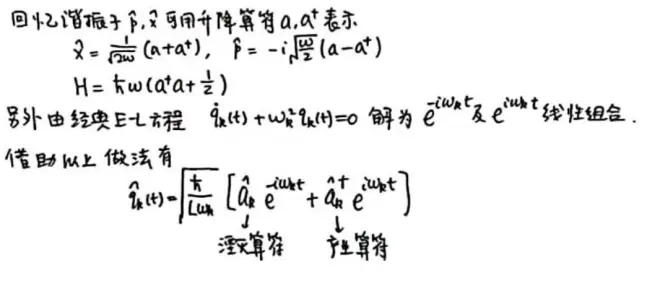 回忆谐振子 p̂, x̂ 可用升降算符 a, a† 表示
x̂ = 1/√(2ω) (a+a†), p̂ = -i√(ω/2) (a-a†)
H = ħω(a†a + 1/2)
另外由经典E-L方程 q̈ₖ(t)+ωₖ²qₖ(t)=0 解为 e^{-iωₖt} 及 e^{iωₖt} 线性组合.
借助以上做法有
q̂ₖ(t) = √(ħ/(Lωₖ)) [âₖ e^{-iωₖt} + âₖ† e^{iωₖt}]
↓ ↓
湮灭算符 产生算符